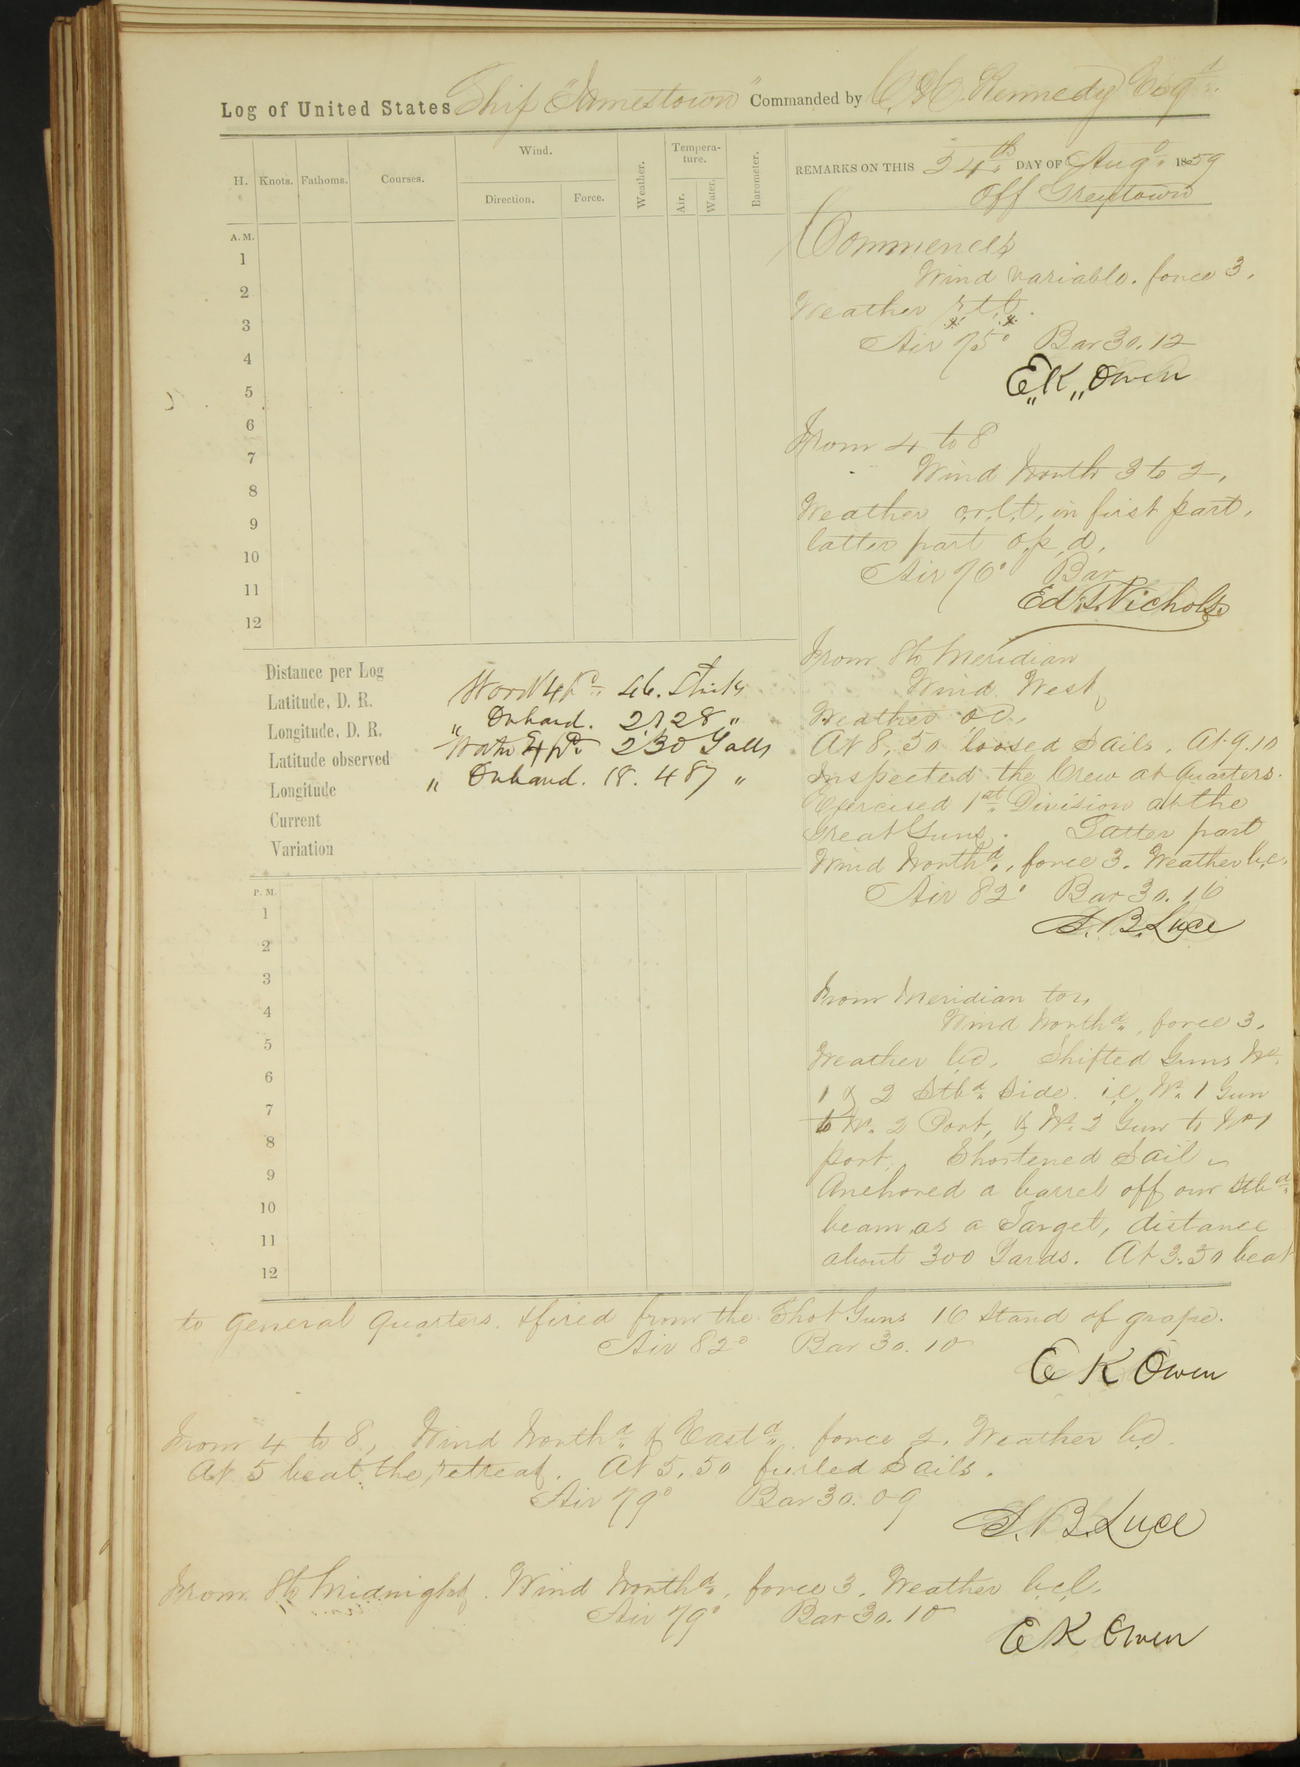 Log of United States Ship "Jamestown" Commanded by C. H. Kennedy Esqr
H. Knots. Fathoms. Courses. Wind. Direction. Force. Weather. Tempera-ture. Air. Water. Barometer.
REMARKS ON THIS 24th DAY OF Augt. 1859
Off Greytown
A. M.
1
2
3
4
5
6
7
8
9
10
11
12
Commences
Wind variable. force 3.
Weather r.t.l.
Air 75° Bar 30.12
E. K. Owen
From 4 to 8
Wind North 3 to 2.
Weather o.r.l.t. in first part,
latter part o.p.d.
Air 76° Bar
Ed. T. Nichols
From 8 to Meridian
Wind West
Weather o.c.
At 8.50 loosed Sails. At 9.10
Inspected the Crew at Quarters.
Exercised 1st Division at the
Great Guns. Latter part
Wind Northd., force 3. Weather b.c.
Air 82° Bar 30.10
S. B. Luce
Distance per Log
Latitude, D. R.
Longitude, D. R.
Latitude observed
Longitude
Current
Variation
Wood 46. Sticks
" Onhand. 2728 "
Water 230 Galls
" Onhand. 18.487 "
P. M.
1
2
3
4
5
6
7
8
9
10
11
12
From Meridian to 4
Wind Northd., force 3.
Weather b.c. Shifted Guns No.
1 & 2 Stbd. Side. i.e. No. 1 Gun
to No. 2 Port, & No. 2 Gun to No 1
port. Shortened Sail
Anchored a barrel off our Stbd.
beam as a Target, distance
about 300 Yards. At 3.30 beat
to General Quarters. & fired from the Shot Guns 16 Stand of grape.
Air 82° Bar 30.10
E K Owen
From 4 to 8, Wind Northd. & Eastd. force 2. Weather b.c.
At 5 beat the retreat. At 5.50 furled Sails.
Air 79° Bar 30.09
S. B. Luce
From 8 to Midnight. Wind Northd., force 3. Weather b.c.l.
Air 79° Bar 30.10
E K Owen